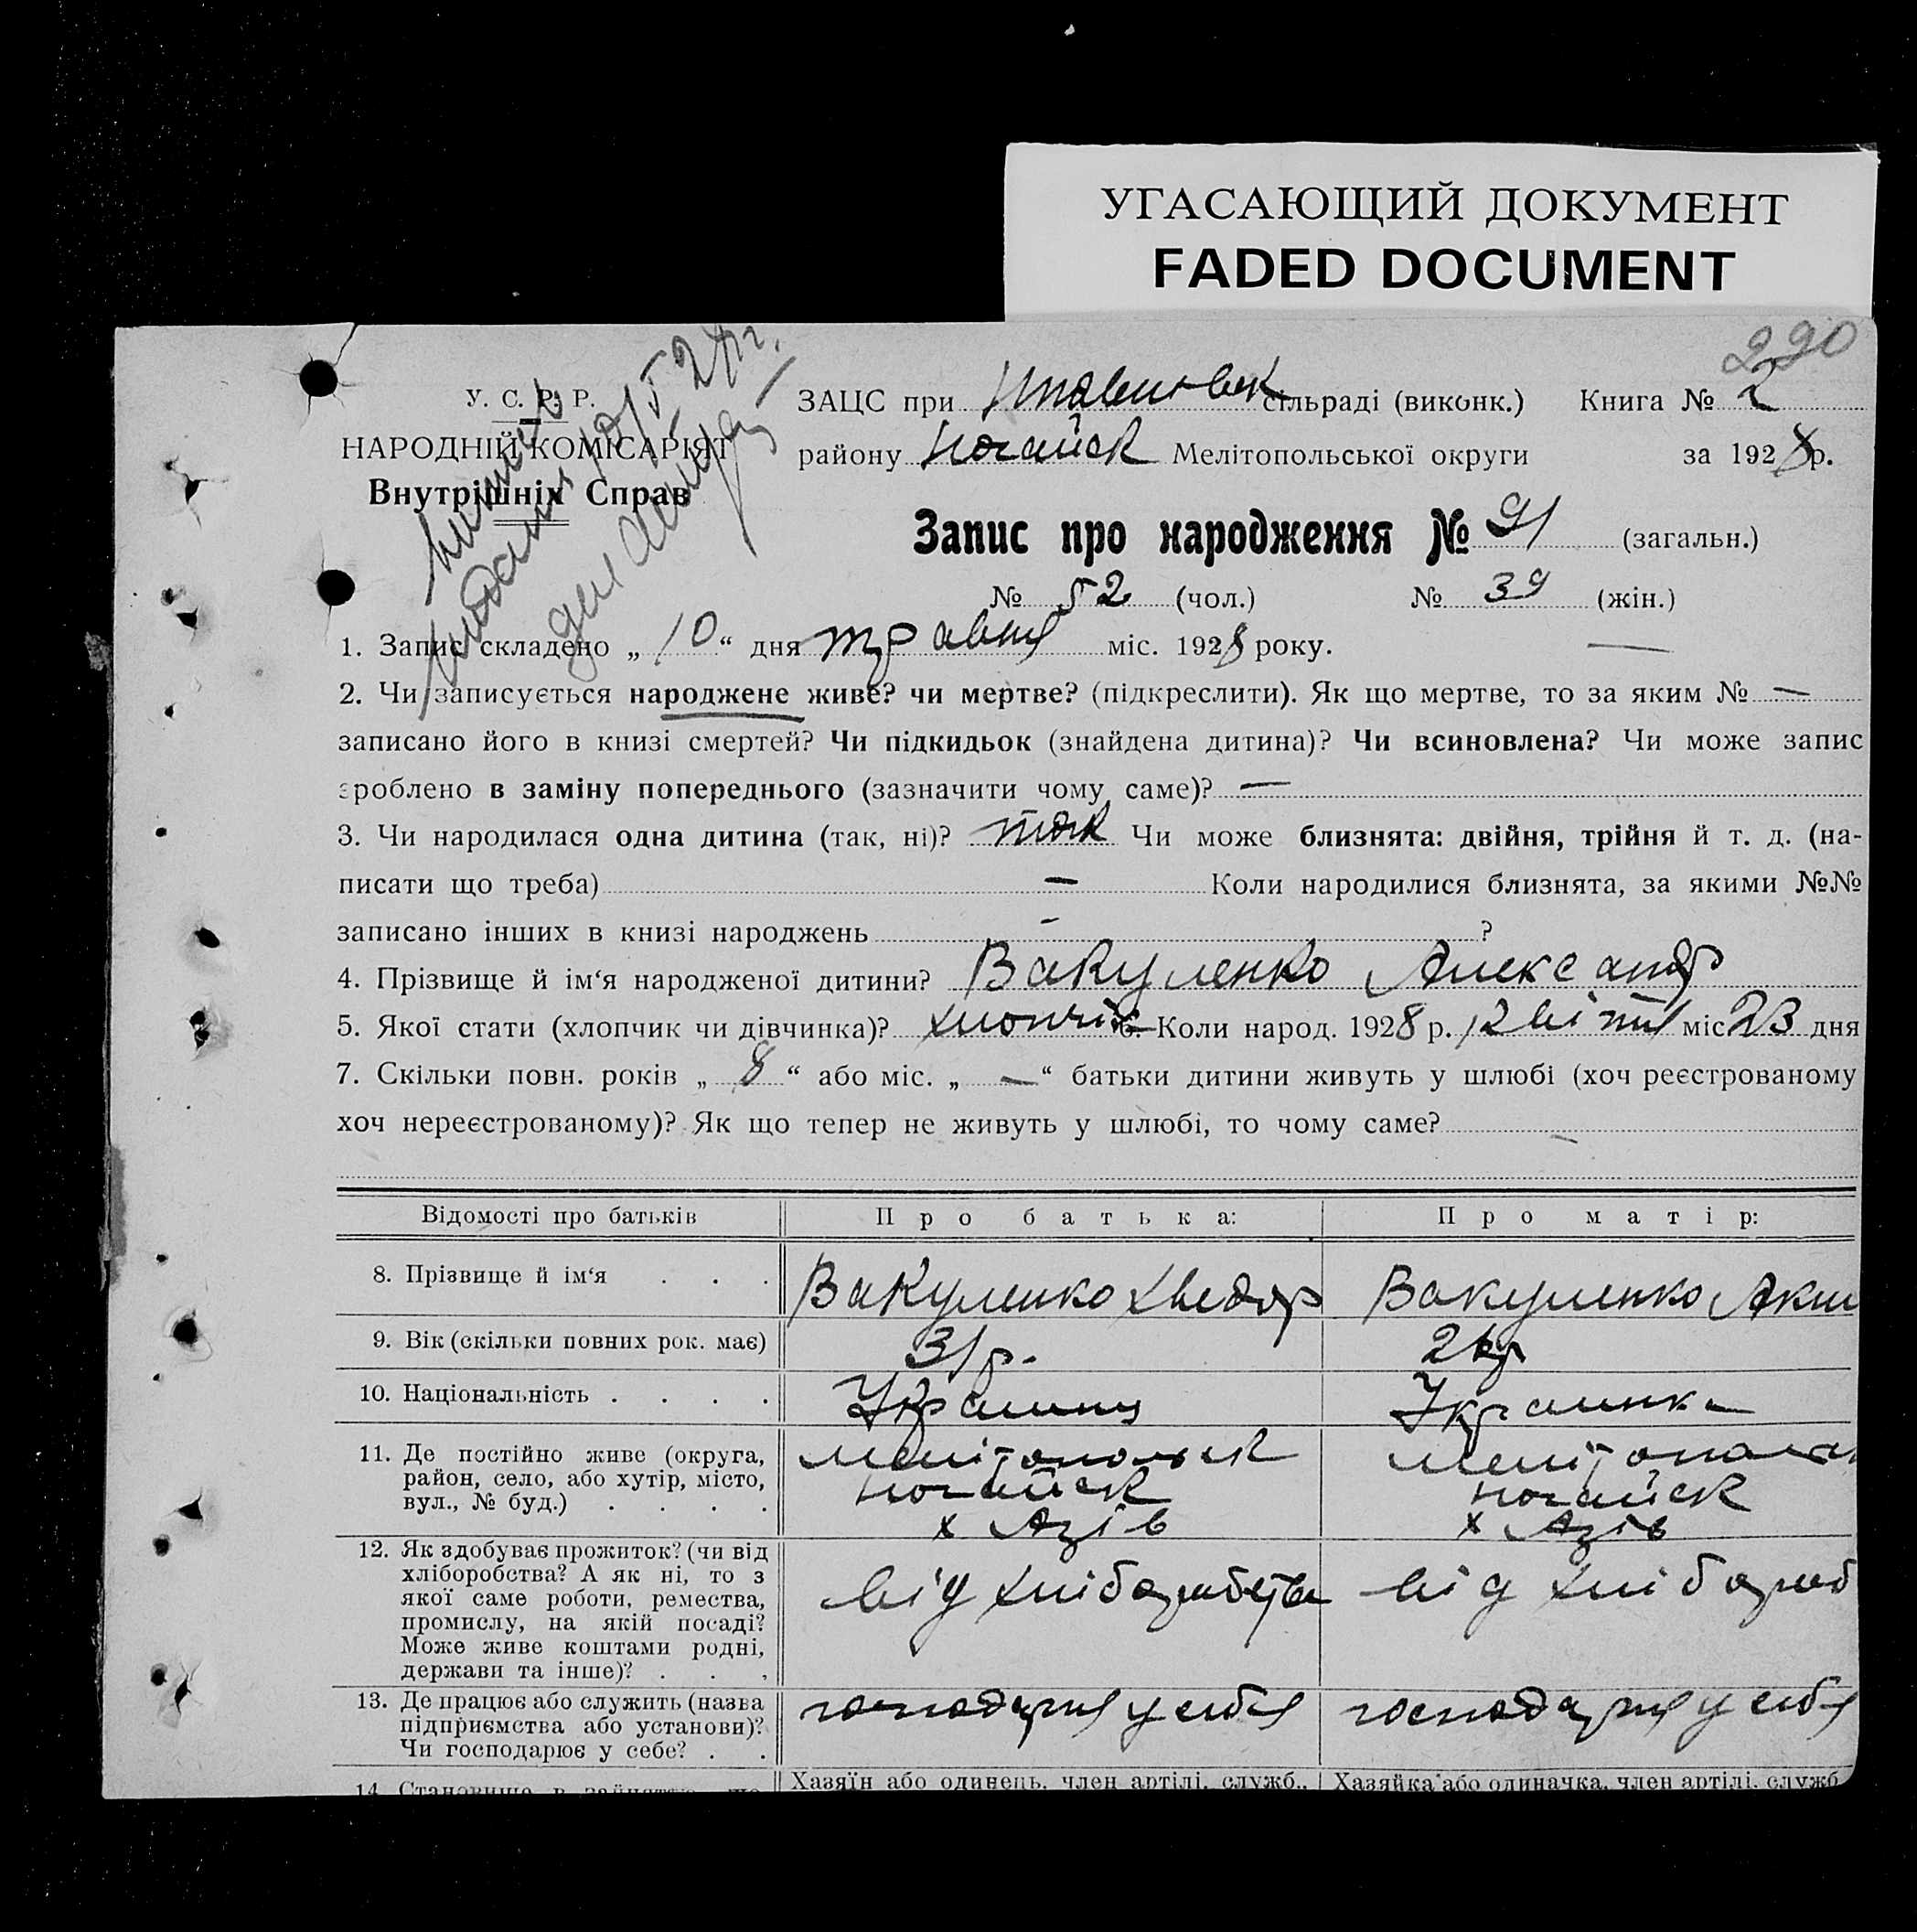 УГАСАЮЩИЙ ДОКУМЕНТ
FADED DOCUMENT
290
У. С. Р. Р.
НАРОДНІЙ КОМІСАРІЯТ
Внутрішніх Справ
ЗАЦС при сільраді (виконк.) Книга № 2
району Ногайск Мелітопольської округи за 1928 р.
Запис про народження № 91 (загальн.)
№ 52 (чол.) № 39 (жін.)
1. Запис складено „ 10 “ дня травня міс. 1928 року. —
2. Чи записується народжене живе? чи мертве? (підкреслити). Як що мертве, то за яким № —
записано його в книзі смертей? Чи підкидьок (знайдена дитина)? Чи всиновлена? Чи може запис
зроблено в заміну попереднього (зазначити чому саме)? —
3. Чи народилася одна дитина (так, ні)? так Чи може близнята: двійня, трійня й т. д. (на-
писати що треба) — Коли народилися близнята, за якими №№
записано інших в книзі народжень - ?
4. Прізвище й ім‘я народженої дитини? Вакуленко Александр
5. Якої стати (хлопчик чи дівчинка)? хлопчик 6. Коли народ. 1928 р. квітня міс 23 дня
7. Скільки повн. років „ 8 “ або міс. „ — “ батьки дитини живуть у шлюбі (хоч реєстрованому
хоч нереєстрованому)? Як що тепер не живуть у шлюбі, то чому саме? —
Відомості про батьків Про батька: Про матір:
8. Прізвище й ім‘я . . . Вакуленко Хведор Вакуленко
9. Вік (скільки повних рок. має) 31 р.
10. Національність . . . . Украинец Украинка
11. Де постійно живе (округа, Мелітопольск Мелітопольск
район, село, або хутір, місто, Ногайск Ногайск
вул., № буд.) . . . . х Азів х Азів
12. Як здобуває прожиток? (чи від
хліборобства? А як ні, то з від хліборобства від хлібороб
якої саме роботи, ремества,
промислу, на якій посаді?
Може живе коштами родні,
держави та інше)? . . .
13. Де працює або служить (назва господарня у себя господарня у себя
підприємства або установи)?
Чи господарює у себе? . .
14. Становище в Хазяїн або одинець, член артілі, служб., Хазяйка або одиначка, член артілі, служб